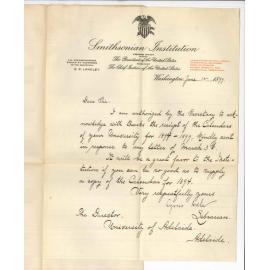 Smithsonian Institution
The President of the United States
The Chief Justice of the United States
S. P. LANGLEY
Washington, June 1st 1899
Dear Sir:
I am authorized by the Secretary to ack-
nowledge with thanks the receipt of the Calendars
of your University for 1894-1899, kindly sent
in response to my letter of March 3d.
It will be a great favor to the Insti-
tution if you can be so good as to supply
a copy of the Calendar for 1894.
Very respectfully yours
Cyrus Adler
Librarian.
The Director,
University of Adelaide
Adelaide.